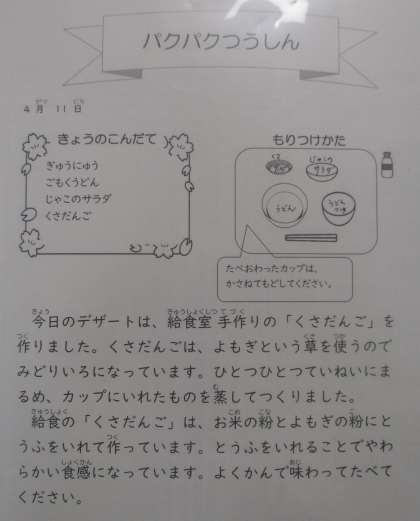 パクパクつうしん
4月 11日
きょうのこんだて
ぎゅうにゅう
ごもくうどん
じゃこのサラダ
くさだんご
もりつけかた
じゃこの
サラダ
うどん
うどん
たべおわったカップは、
かさねてもどしてください。
今日のデザートは、給食室手作りの「くさだんご」を
作りました。くさだんごは、よもぎという草を使うので
みどりいろになっています。ひとつひとつていねいにま
るめ、カップにいれたものを蒸してつくりました。
給食の「くさだんご」は、お米の粉とよもぎの粉にと
うふをいれて作っています。とうふをいれることでやわ
らかい食感になっています。よくかんで味わってたべて
ください。